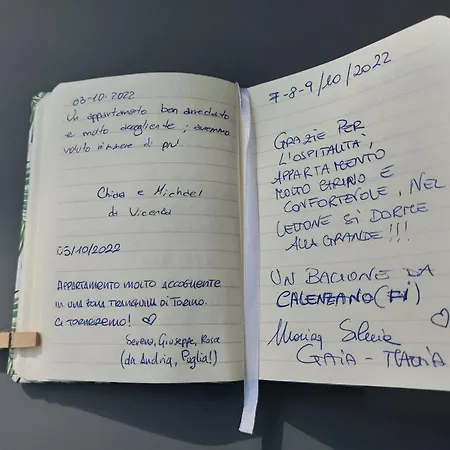 03-10-2022
Un appartamento ben arredato
e molto accogliente, avremmo
voluto rimanere di più!
Chiara e Michael
di Vicenza
03/10/2022
APPARTAMENTO MOLTO ACCOGLIENTE
IN UNA ZONA TRANQUILLA DI TORINO.
CI TORNEREMO!
Serena, Giuseppe, Rosa
(da Andria, Puglia!)
7-8-9/10/2022
GRAZIE PER
L'OSPITALITÀ,
APPARTAMENTO
MOLTO CARINO E
CONFORTEVOLE, NEL
LETTONE SI DORME
ALLA GRANDE!!!
UN BACIONE DA
CALENZANO (FI)
GAIA -